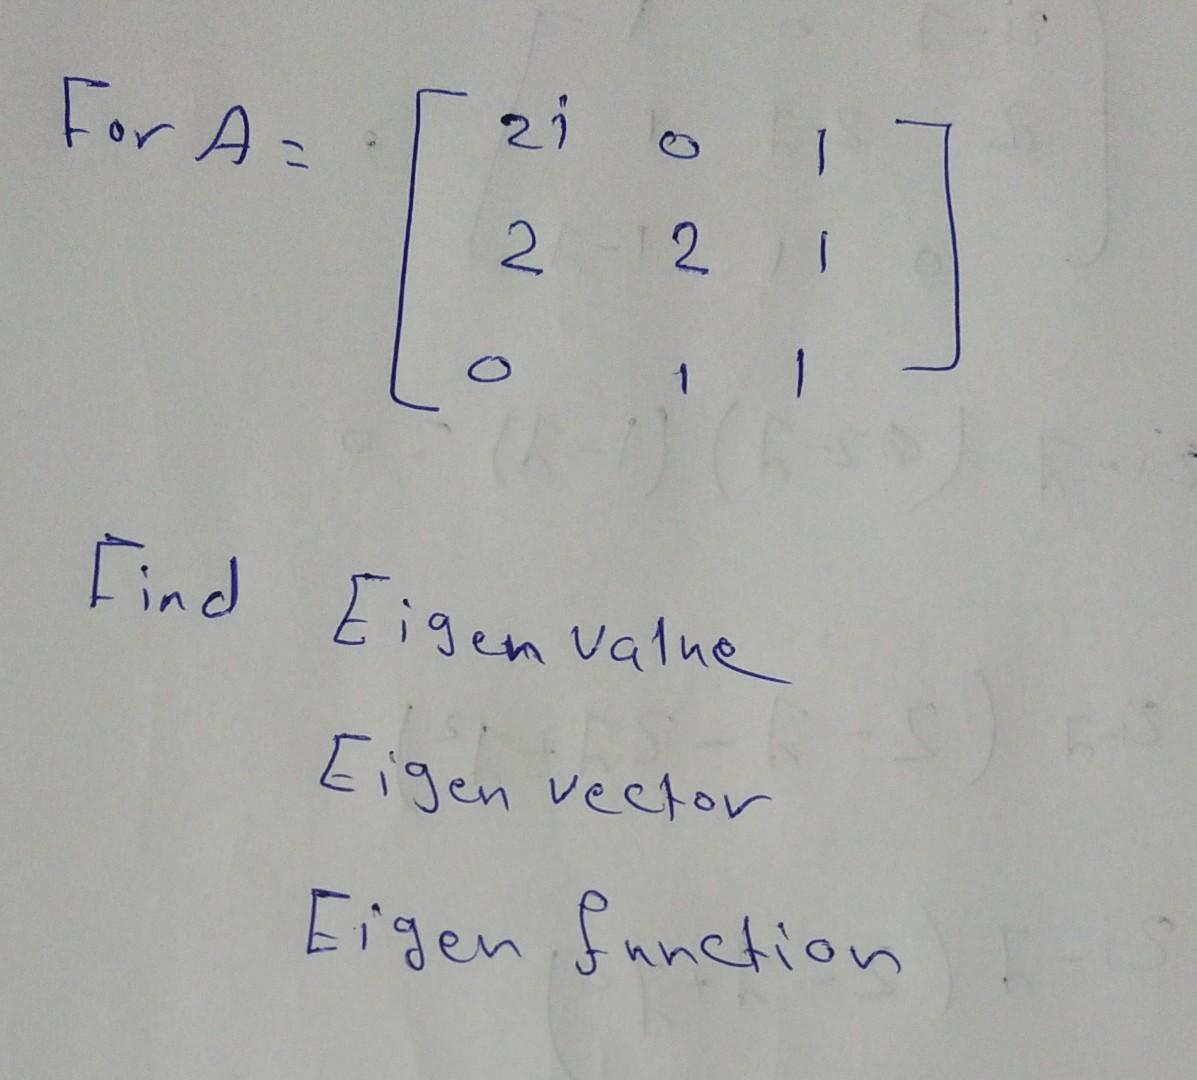 For A = [ 2i 0 1
2 2 1
0 1 1 ]
Find Eigen value
Eigen vector
Eigen function